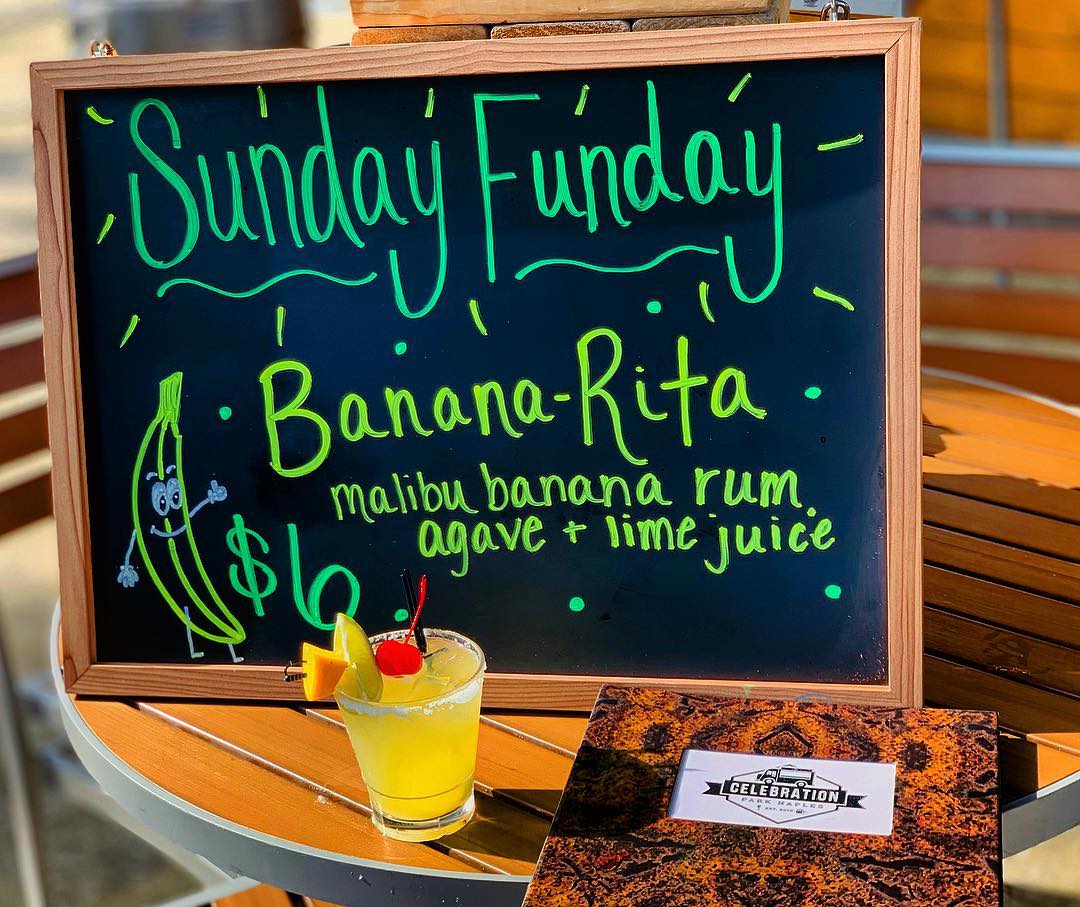 Sunday Funday
Banana-Rita
malibu banana rum,
agave + lime juice
$6
CELEBRATION
PARK NAPLES